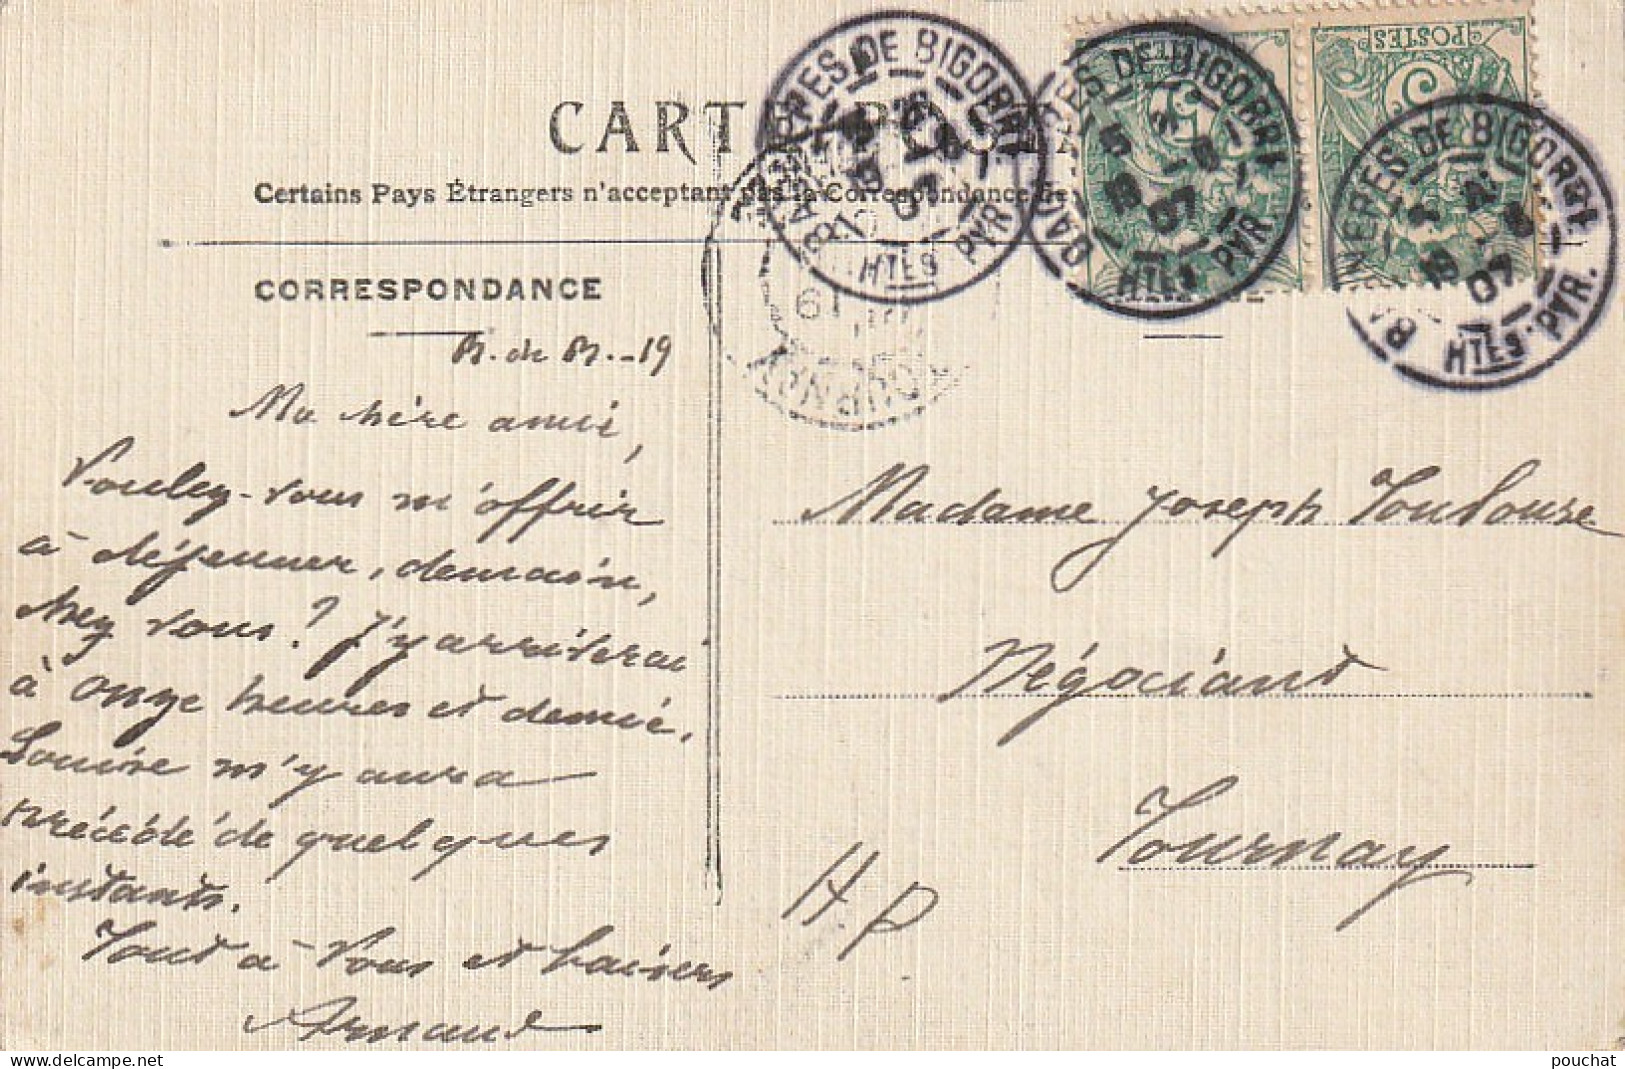 CARTE POSTALE
Certains Pays Étrangers n'acceptent pas la Correspondance de
CORRESPONDANCE
B. de B. - 19
Ma chère amie,
Voulez-vous m'offrir
à déjeuner, demain,
chez vous ? J'y arriverai
à onze heures et demie.
Louise m'y aura
précédé de quelques
instants.
Tout à vous et baisers
Armand
Madame Joseph Toulouse
Négociant
Tournay
H.P.
BAGNÈRES DE BIGORRE
HTES PYR.
BAGNÈRES DE BIGORRE
HTES PYR.
19 07
BAGNÈRES DE BIGORRE
HTES PYR.
19 07
TOURNAY
POSTES
5
pouchat